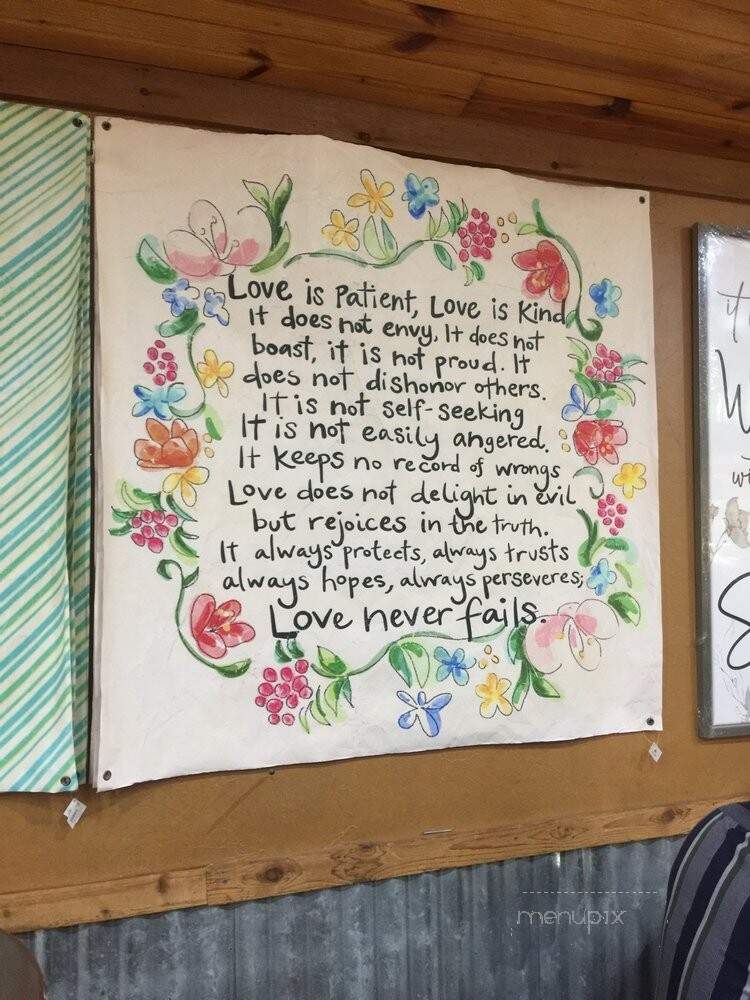 Love is Patient, Love is Kind
It does not envy, It does not
boast, it is not proud. It
does not dishonor others.
It is not self-seeking
It is not easily angered.
It keeps no record of wrongs
Love does not delight in evil
but rejoices in the truth.
It always protects, always trusts
always hopes, always perseveres;
Love never fails.
it
wit
menupix